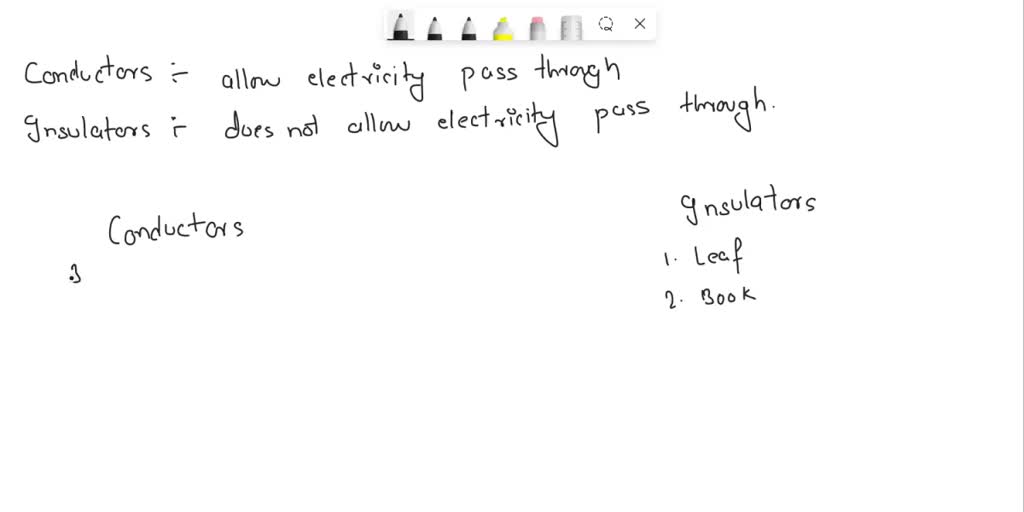 Conductors :- allow electricity pass through
Insulators :- does not allow electricity pass through.
Conductors
Insulators
1. Leaf
2. Book